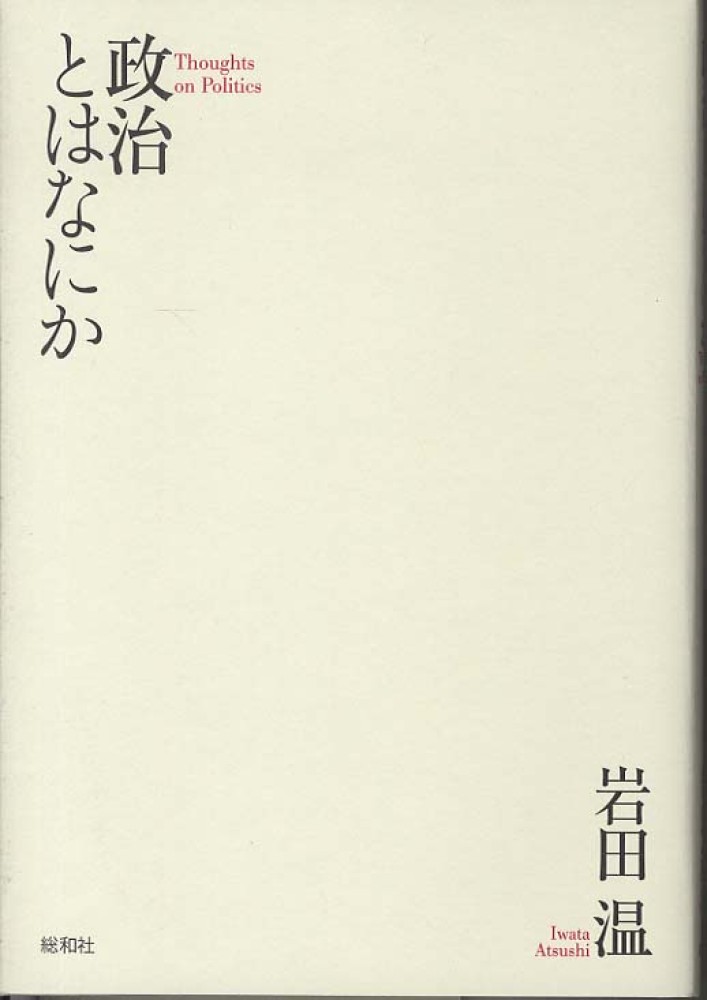 政治
とはなにか
Thoughts
on Politics
岩田 温
Iwata
Atsushi
総和社